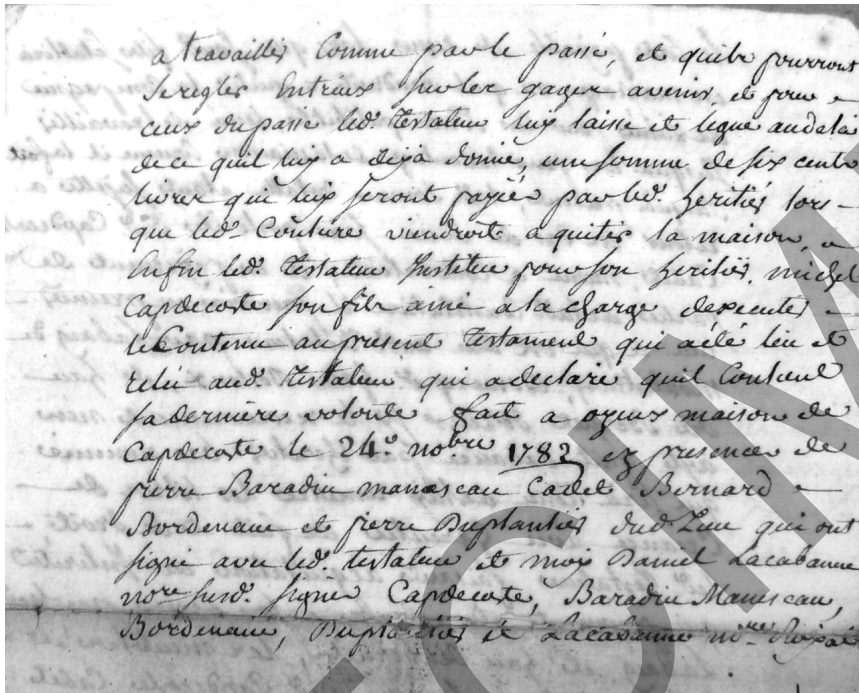 a travailler Comme par le passé, et quils pourront
se regler Entreux sur les gages avenir, et pour
ceux du passé led.t testateur luy laisse et legue audela
de ce quil luy a deja donné, une somme de six cents
livres qui luy seront payées par led.t heritier lors-
que led.t Couture viendroit a quiter la maison, e
Enfin led.t testateur Institue pour son heritier, michel
Capdecoste son fils ainé a la charge dexecuter
le Contenu au present testament qui a été leu et
releu aud.t testateur qui a declaré quil Contient
sa derniere volonté fait a ozenx maison de
Capdecoste le 24.e no.bre 1782 ez presences de
pierre Baradiu manescau Cadet Bernard
Bordenave et pierre Duplantier dud. Lieu qui ont
signé avec led.t testateur et moy Daniel Lacabanne
no.re susd.t signés Capdecoste, Baradiu Manescau,
Bordenave, Duplantier et Lacabanne no.re Royal